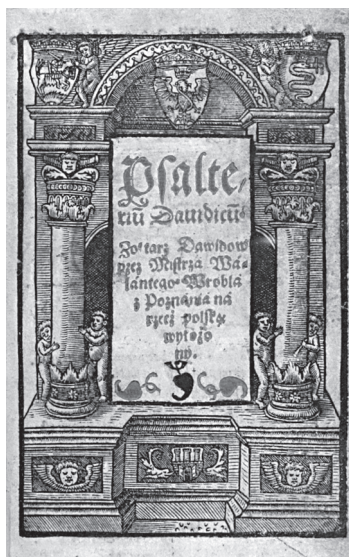 Psalte,
riū Dauidicū.
Zoltarz Dawidow
przez Mistrza Wa-
lantego Wrobla
z Poznania na
rzecz polską
wyłożo
ny.